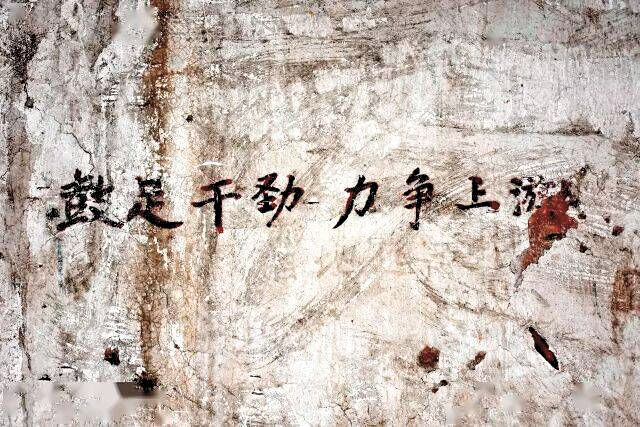 鼓足干劲 力争上游